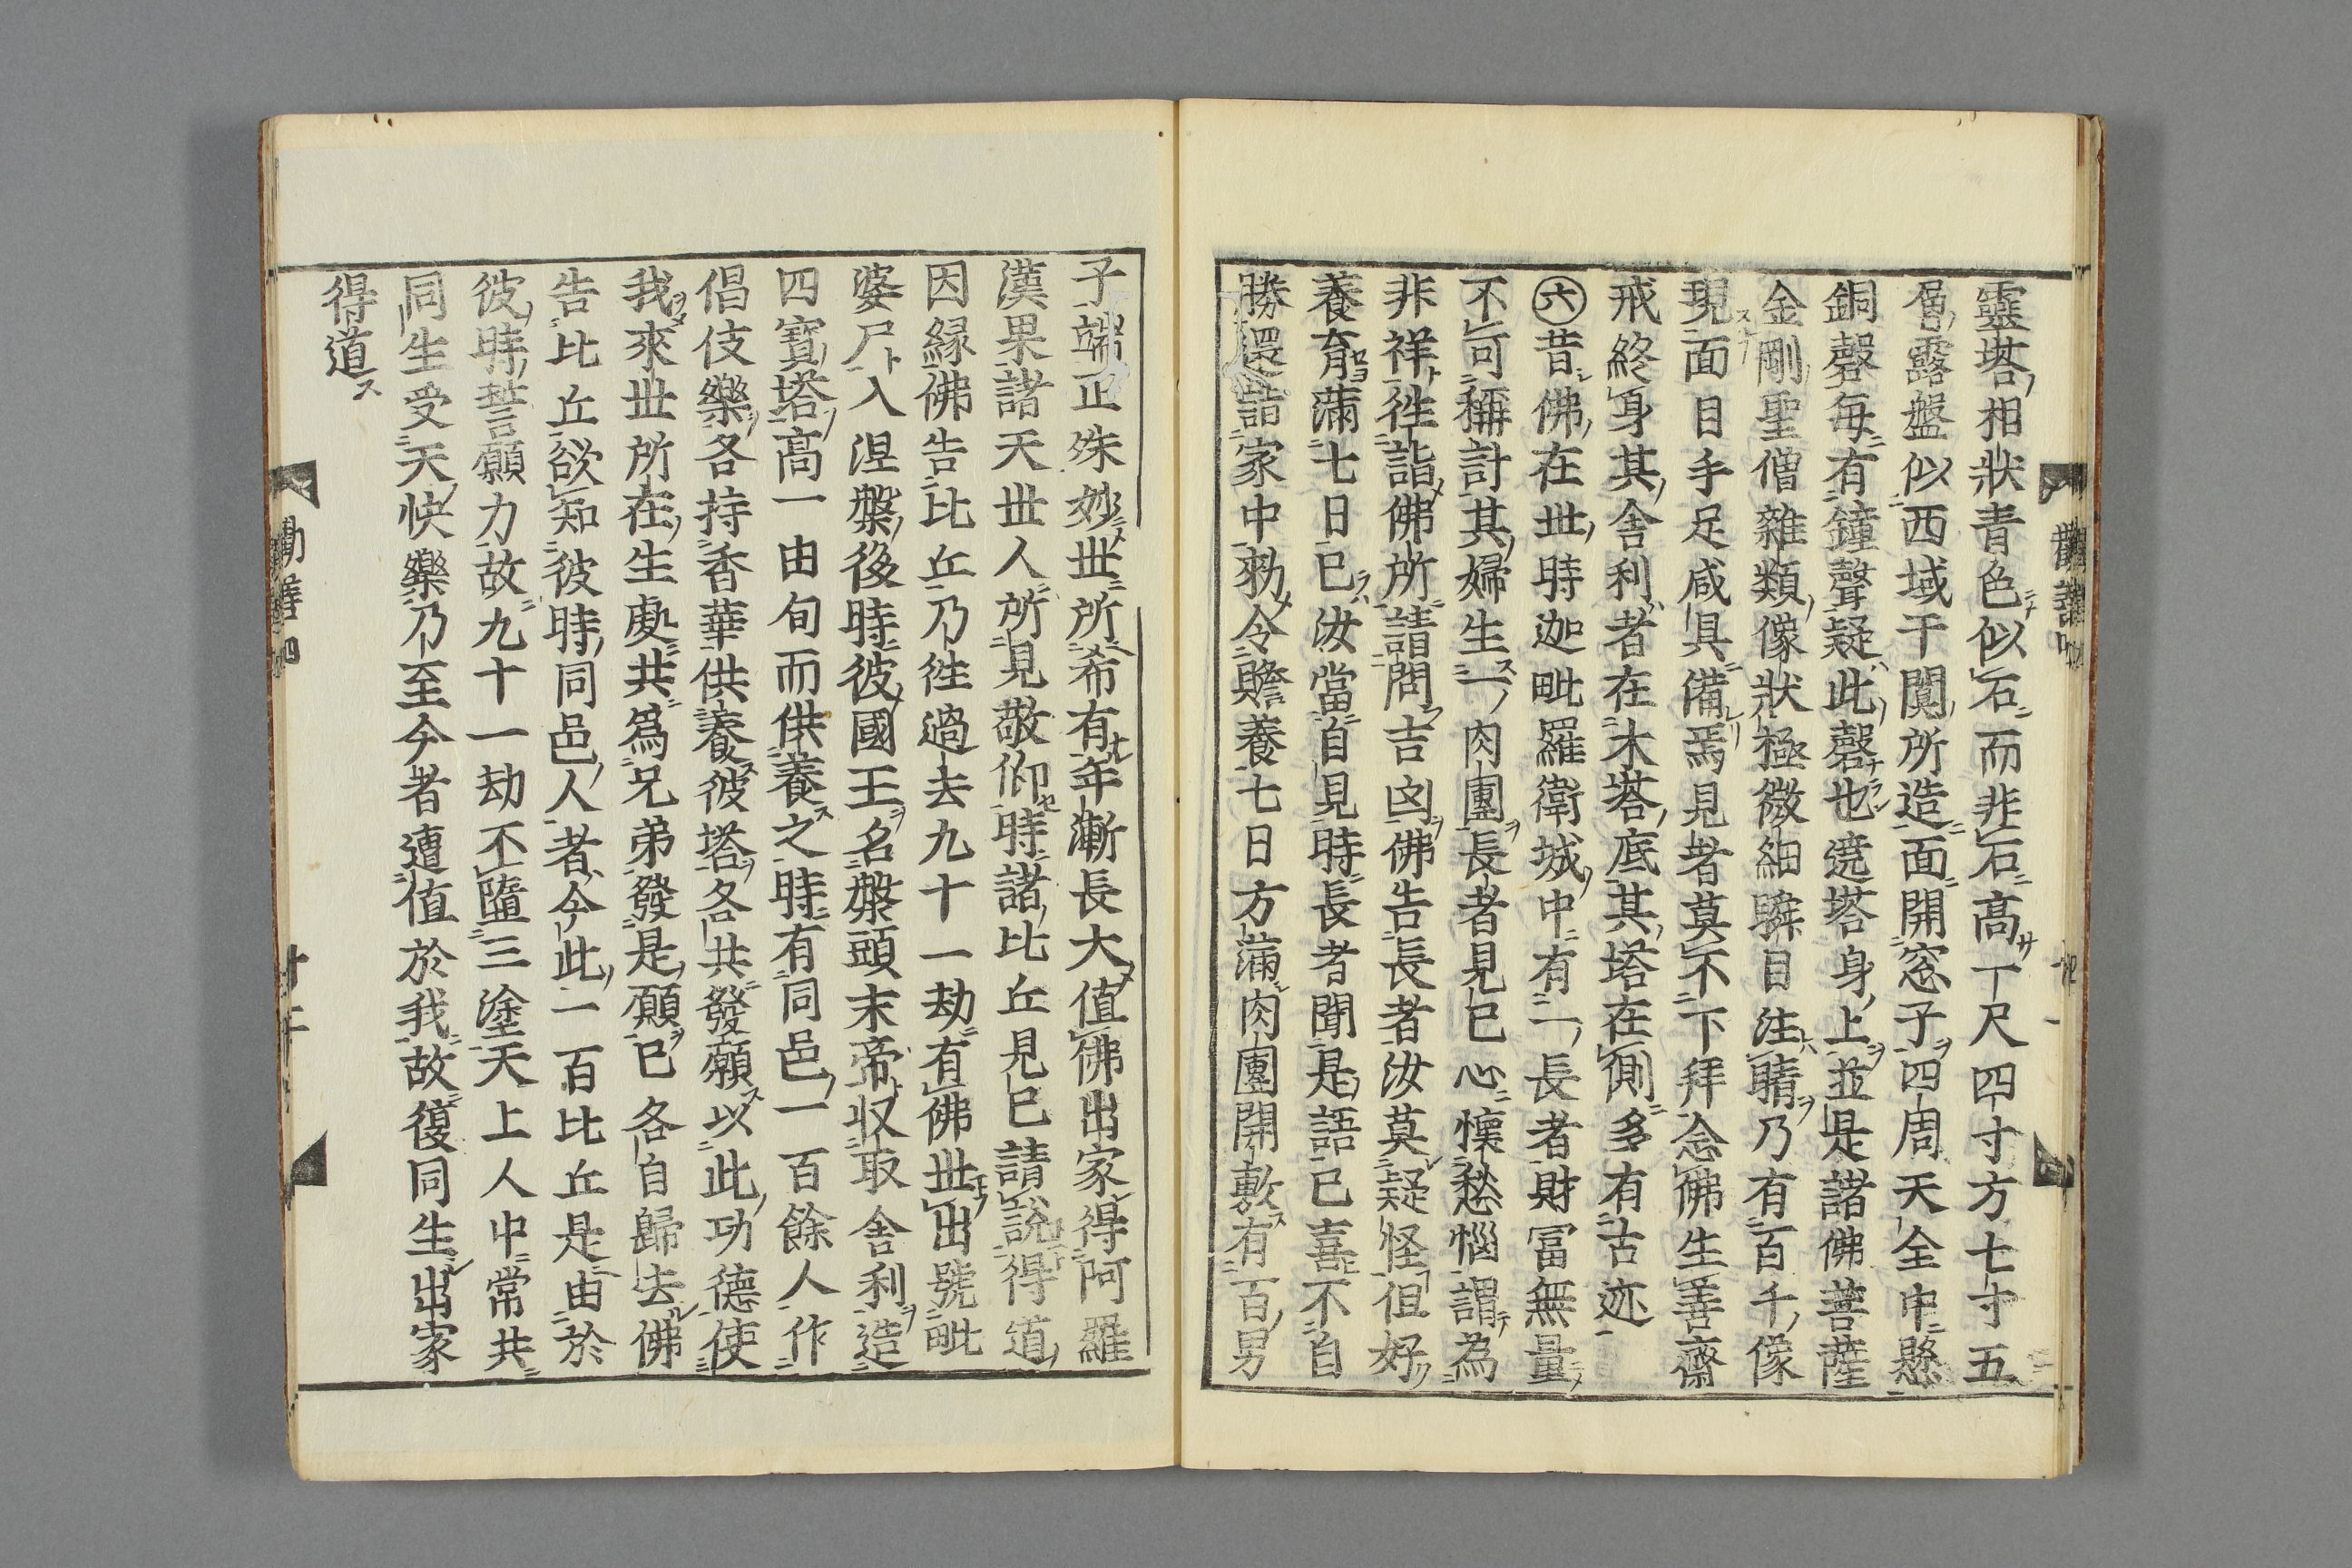 靈塔相狀青色似石而非石高一尺四寸方七寸五
層露盤似西域于闐所造面開窓子四周天全中懸
銅磬毎有鐘聲疑此磬也遶塔身上並是諸佛菩薩
金剛聖僧雜類像狀極微細瞬目注睛乃有百千像
現面目手足咸具備焉見者莫不下拜念佛生善齋
戒終身其舎利者在木塔底其塔在側多有古迹
㊅昔佛在世時迦毗羅衛城中有一長者財冨無量
不可稱計其婦生一肉團長者見已心懐愁惱謂為
非祥徃詣佛所請問吉凶佛告長者汝莫疑怪但好
養育滿七日已汝當自見時長者聞是語已喜不自
勝還詣家中勑令贍養七日方滿肉團開敷有百男
子端正殊妙世所希有年漸長大值佛出家得阿羅
漢果諸天世人所見敬仰時諸比丘見已請說得道
因縁佛告比丘乃徃過去九十一劫有佛世出號毗
婆尸入涅槃後時彼國王名槃頭末帝収取舎利造
四寳塔髙一由旬而供養之時有同邑一百餘人作
倡伎樂各持香華供養彼塔各共發願以此功德使
我來世所在生處共爲兄弟發是願已各自歸去佛
告比丘欲知彼時同邑人者今此一百比丘是由於
彼時誓願力故九十一劫不墮三塗天上人中常共
同生受天快樂乃至今者遭值於我故復同生出家
得道